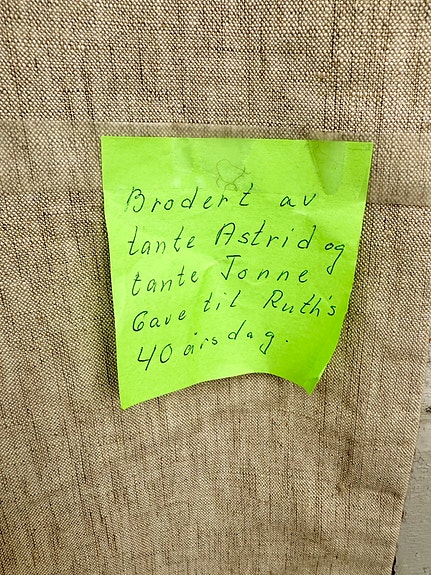 Brodert av
tante Astrid og
tante Jonne
Gave til Ruth's
40 årsdag.